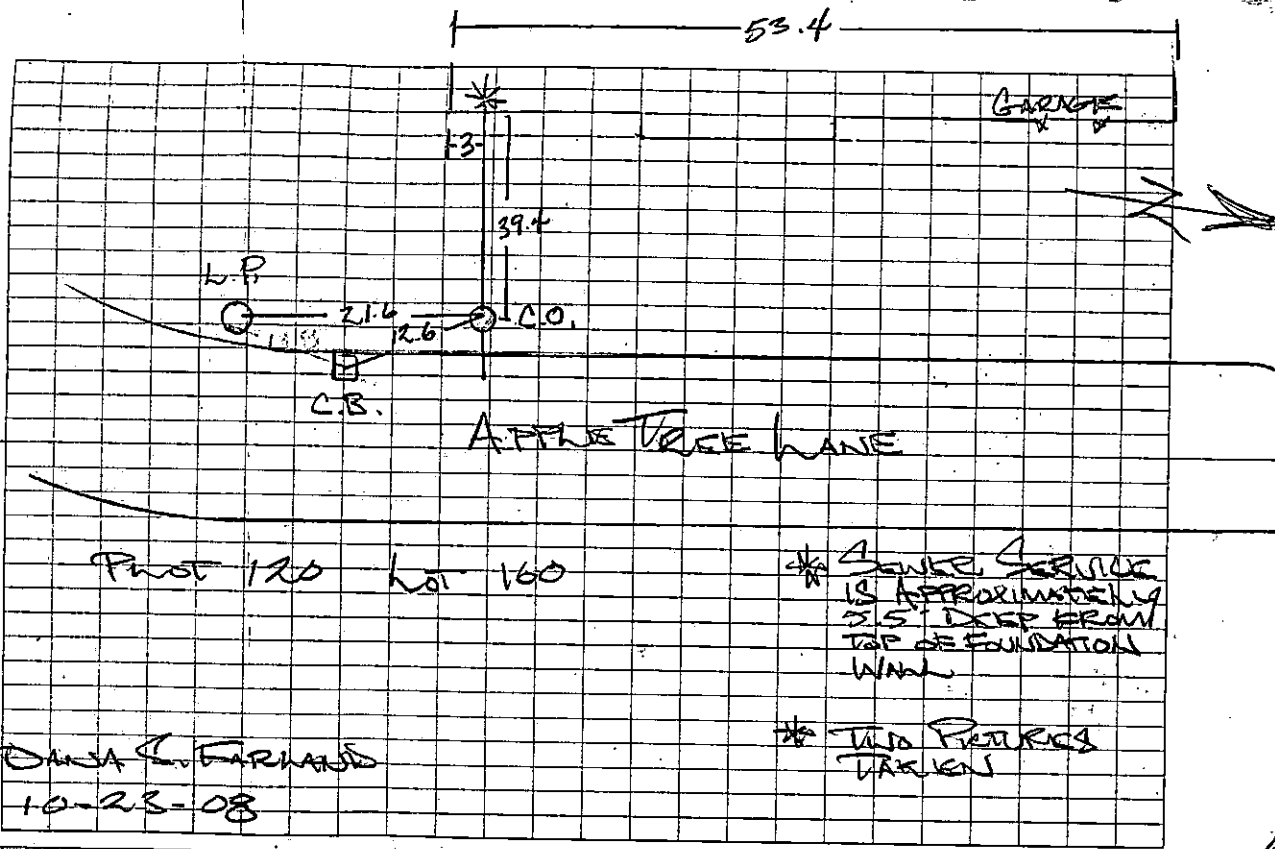 53.4
GARAGE
3
39.4
L.P.
21.6
C.O.
12.6
C.B.
APPLE TREE LANE
PLOT 120 LOT 160
* SEWER SERVICE
IS APPROXIMATELY
DEEP FROM
TOP OF FOUNDATION
WALL
* TWO PICTURES
TAKEN
DANA S. FARLAND
10-23-08